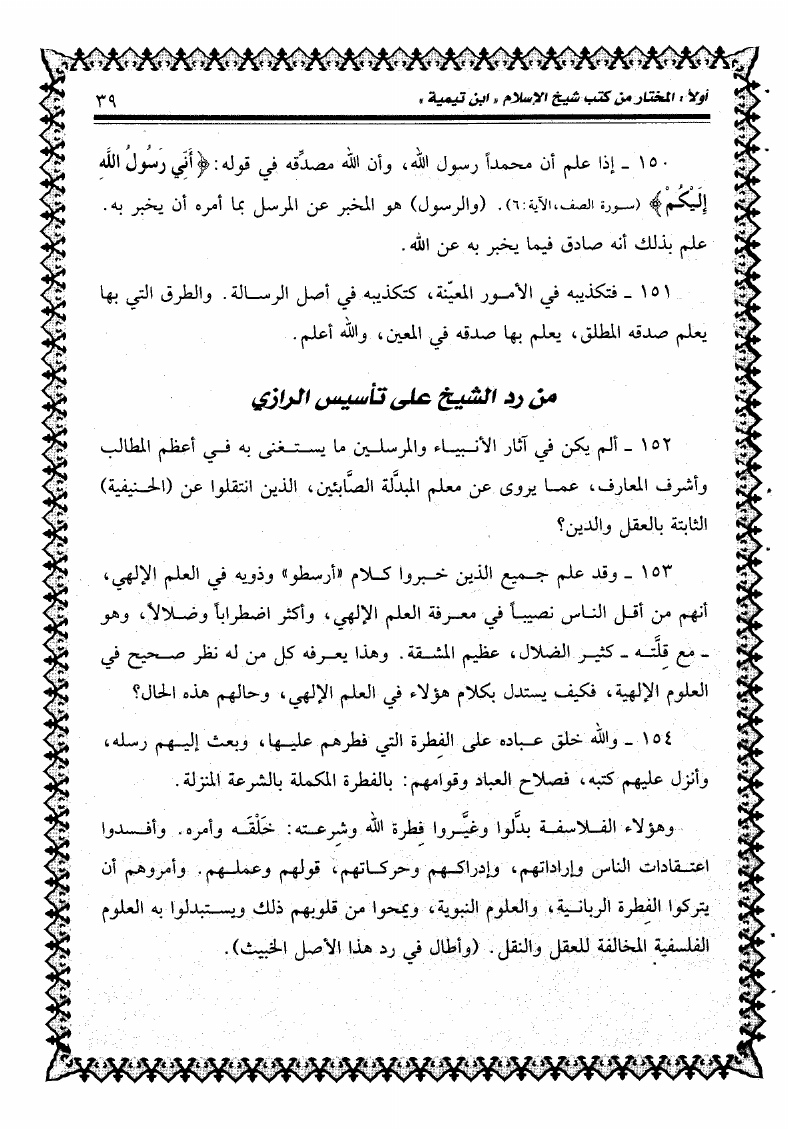 أولاً : المختار من كتب شيخ الإسلام « ابن تيمية » ٣٩
١٥٠ ـ إذا علم أن محمداً رسول الله، وأن الله مصدِّقه في قوله: ﴿أَنِّي رَسُولُ اللَّهِ
إِلَيْكُمْ﴾ (سورة الصف، الآية: ٦). (والرسول) هو المخبر عن المرسل بما أمره أن يخبر به.
علم بذلك أنه صادق فيما يخبر به عن الله.
١٥١ ـ فتكذيبه في الأمور المعيّنة، كتكذيبه في أصل الرسالة. والطرق التي بها
يعلم صدقه المطلق، يعلم بها صدقه في المعين، والله أعلم.
من رد الشيخ على تأسيس الرازي
١٥٢ ـ ألم يكن في آثار الأنبياء والمرسلين ما يستغنى به في أعظم المطالب
وأشرف المعارف، عما يروى عن معلم المبدَّلة الصَّابئين، الذين انتقلوا عن (الحنيفية)
الثابتة بالعقل والدين؟
١٥٣ ـ وقد علم جميع الذين خبروا كلام «أرسطو» وذويه في العلم الإلهي،
أنهم من أقل الناس نصيباً في معرفة العلم الإلهي، وأكثر اضطراباً وضلالاً، وهو
ـ مع قِلَّته ـ كثير الضلال، عظيم المشقة. وهذا يعرفه كل من له نظر صحيح في
العلوم الإلهية، فكيف يستدل بكلام هؤلاء في العلم الإلهي، وحالهم هذه الحال؟
١٥٤ ـ والله خلق عباده على الفِطرة التي فطرهم عليها، وبعث إليهم رسله،
وأنزل عليهم كتبه، فصلاح العباد وقوامهم: بالفطرة المكملة بالشرعة المنزلة.
وهؤلاء الفلاسفة بدَّلوا وغيَّروا فِطرة الله وشرعته: خَلْقَه وأمره. وأفسدوا
اعتقادات الناس وإراداتهم، وإدراكهم وحركاتهم، قولهم وعملهم. وأمروهم أن
يتركوا الفطرة الربانية، والعلوم النبوية، ويمحوا من قلوبهم ذلك ويستبدلوا به العلوم
الفلسفية المخالفة للعقل والنقل. (وأطال في رد هذا الأصل الخبيث).